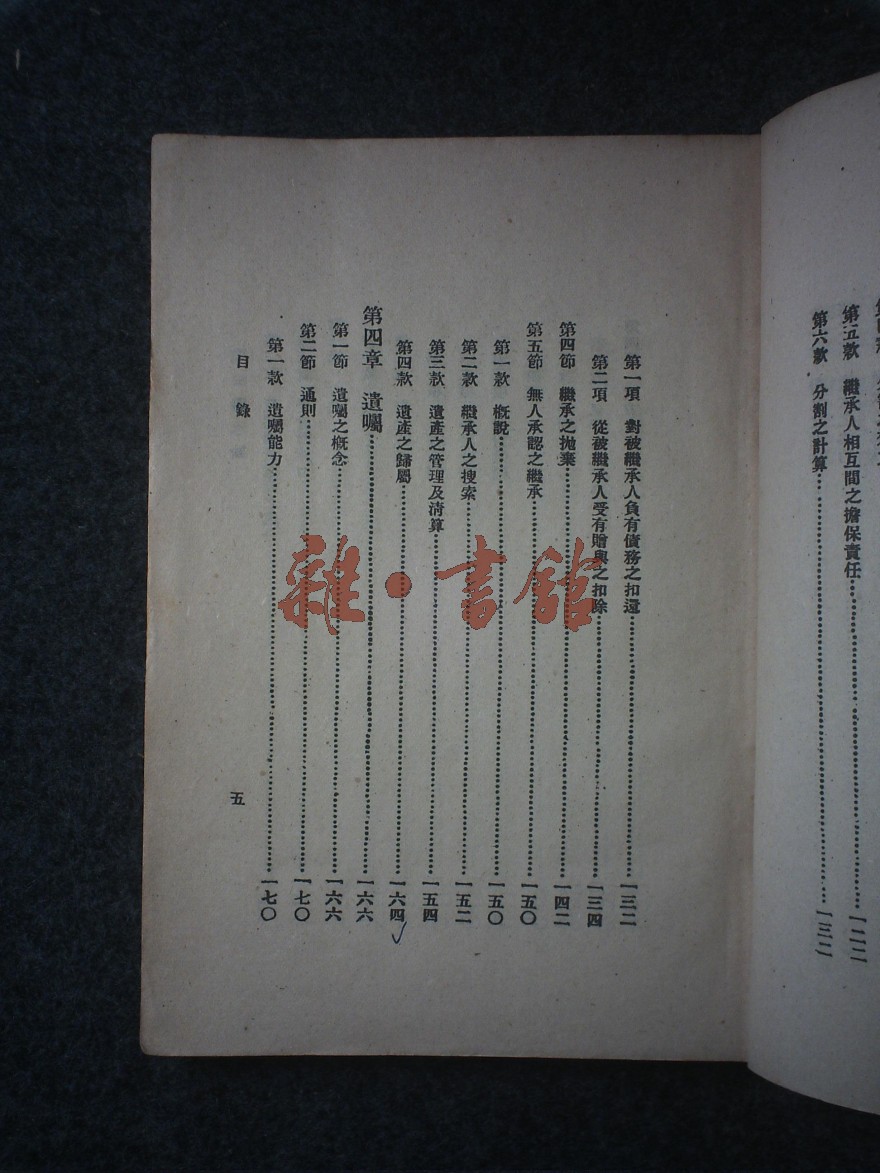 第五款　繼承人相互間之擔保責任……一二二
第六款　分割之計算……一三二
第一項　對被繼承人負有債務之扣還……一三二
第二項　從被繼承人受有贈與之扣除……一三四
第四節　繼承之拋棄……一四二
第五節　無人承認之繼承……一五〇
第一款　概說……一五〇
第二款　繼承人之搜索……一五二
第三款　遺產之管理及清算……一五四
第四款　遺產之歸屬……一六四
第四章　遺囑……一六六
第一節　遺囑之概念……一六六
第二節　通則……一七〇
第一款　遺囑能力……一七〇
目錄　五
雜·書館